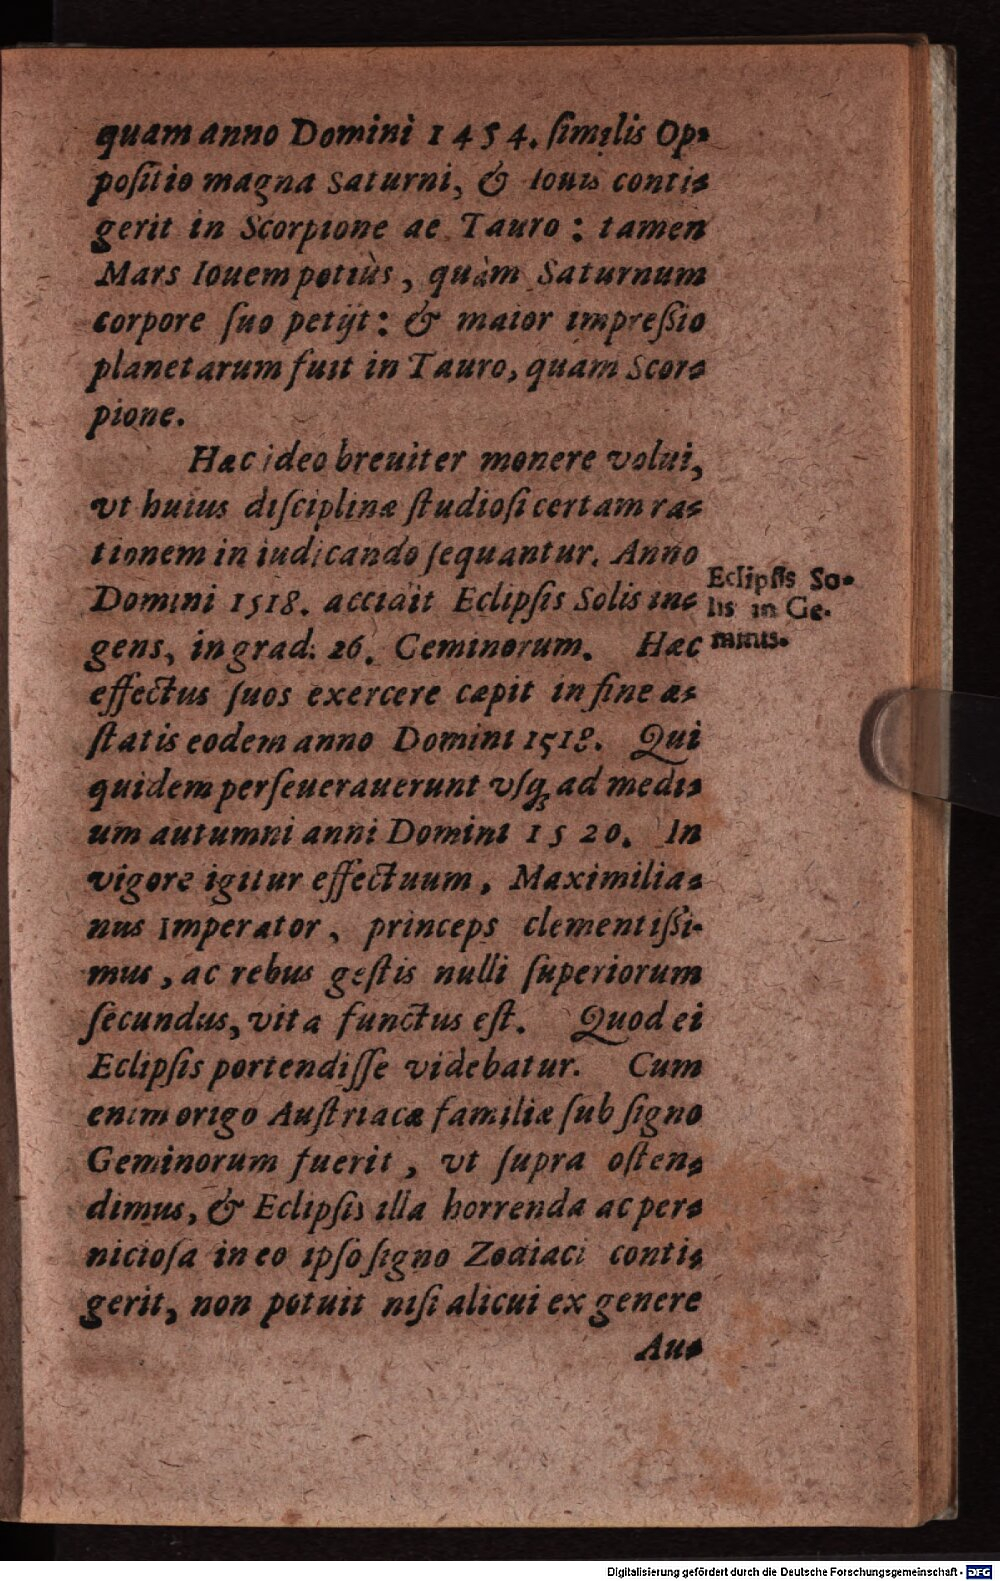 quam anno Domini 1454. ſimilis Op-
poſitio magna Saturni, & Iouis conti-
gerit in Scorpione ac Tauro: tamen
Mars Iouem potiùs, quàm Saturnum
corpore ſuo petijt: & maior impreſsio
planetarum fuit in Tauro, quàm Scor-
pione.
Hæc ideo breuiter monere volui,
vt huius diſciplinæ ſtudioſi certam ra-
tionem in iudicando ſequantur. Anno
Domini 1518. accidit Eclipſis Solis in-
gens, in grad: 26. Geminorum. Hæc
effectus ſuos exercere cæpit in fine æ-
ſtatis eodem anno Domini 1518. Qui
quidem perſeuerauerunt vſq; ad medi-
um autumni anni Domini 1520. In
vigore igitur effectuum, Maximilia-
nus Imperator, princeps clementiſsi-
mus, ac rebus geſtis nulli ſuperiorum
ſecundus, vita functus eſt. Quod ei
Eclipſis portendiſſe videbatur. Cum
enim origo Auſtriacæ familiæ ſub ſigno
Geminorum fuerit, vt ſupra oſten-
dimus, & Eclipſis illa horrenda ac per-
nicioſa in eo ipſo ſigno Zodiaci conti-
gerit, non potuit niſi alicui ex genere
Au-
Eclipſis So-
lis in Ge-
minis.
Digitalisierung gefördert durch die Deutsche Forschungsgemeinschaft - DFG